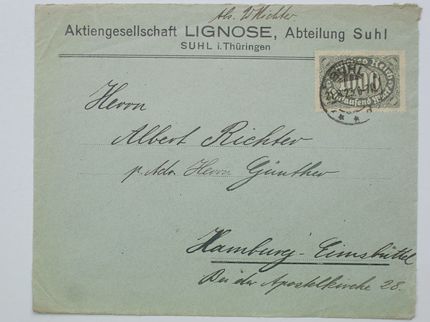 Abs. V Richter
Aktiengesellschaft LIGNOSE, Abteilung Suhl
SUHL i. Thüringen
SUHL
1000
Tausend
Herrn
Albert Richter
p. Adr. Herrn Günther
Hamburg-Eimsbüttel
Bei der Apostelkirche 28.